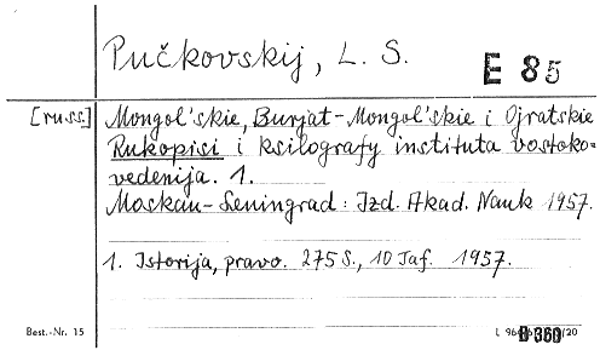 Pučkovskij, L. S.
E 85
[russ.] Mongol'skie, Burjat-Mongol'skie i Ojratskie
Rukopisi i ksilografy instituta vostoko=
vedenija. 1.
Moskau-Leningrad: Izd. Akad. Nauk 1957.
1. Istorija, pravo. 275 S., 10 Taf. 1957.
Best.-Nr. 15
B 360
/20